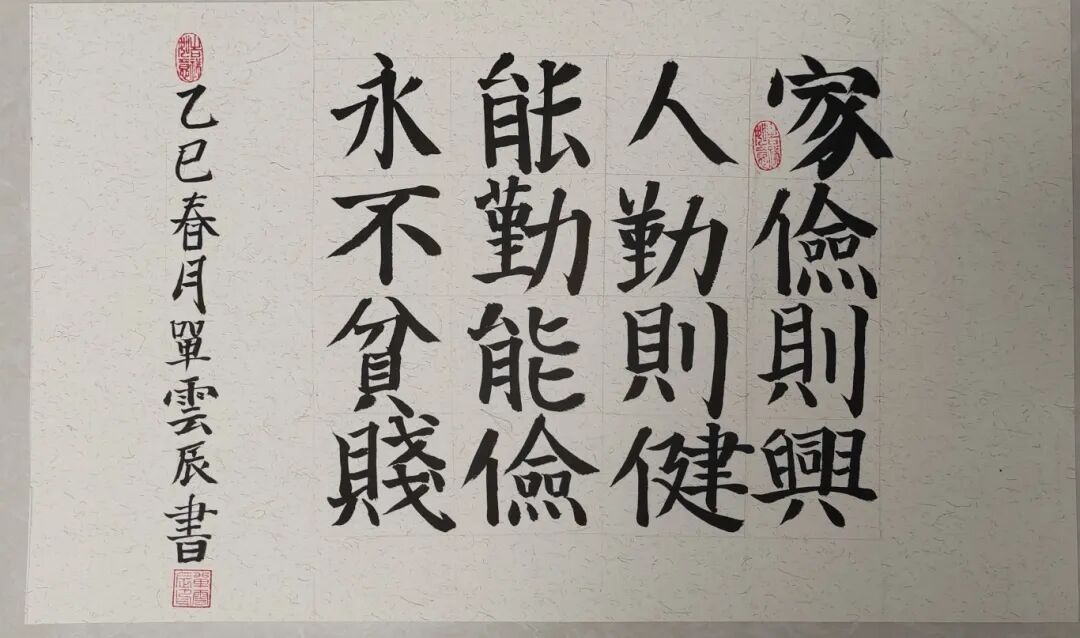 家儉則興
人勤則健
能勤能儉
永不貧賤
乙巳春月單雲辰書